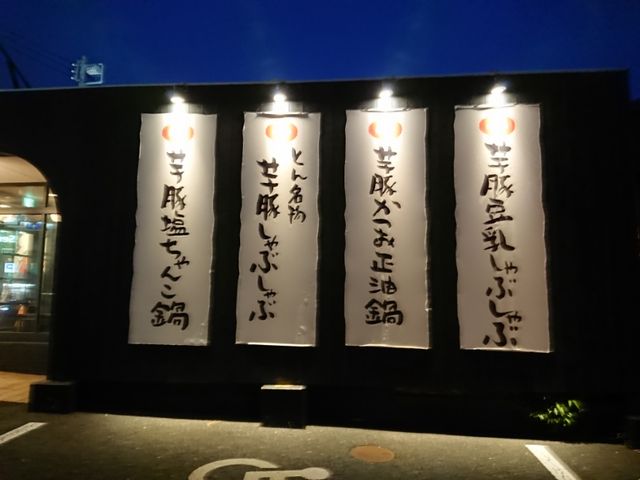 芋豚豆乳しゃぶしゃぶ
芋豚かつお正油鍋
とん名物
芋豚しゃぶしゃぶ
芋豚塩ちゃんこ鍋